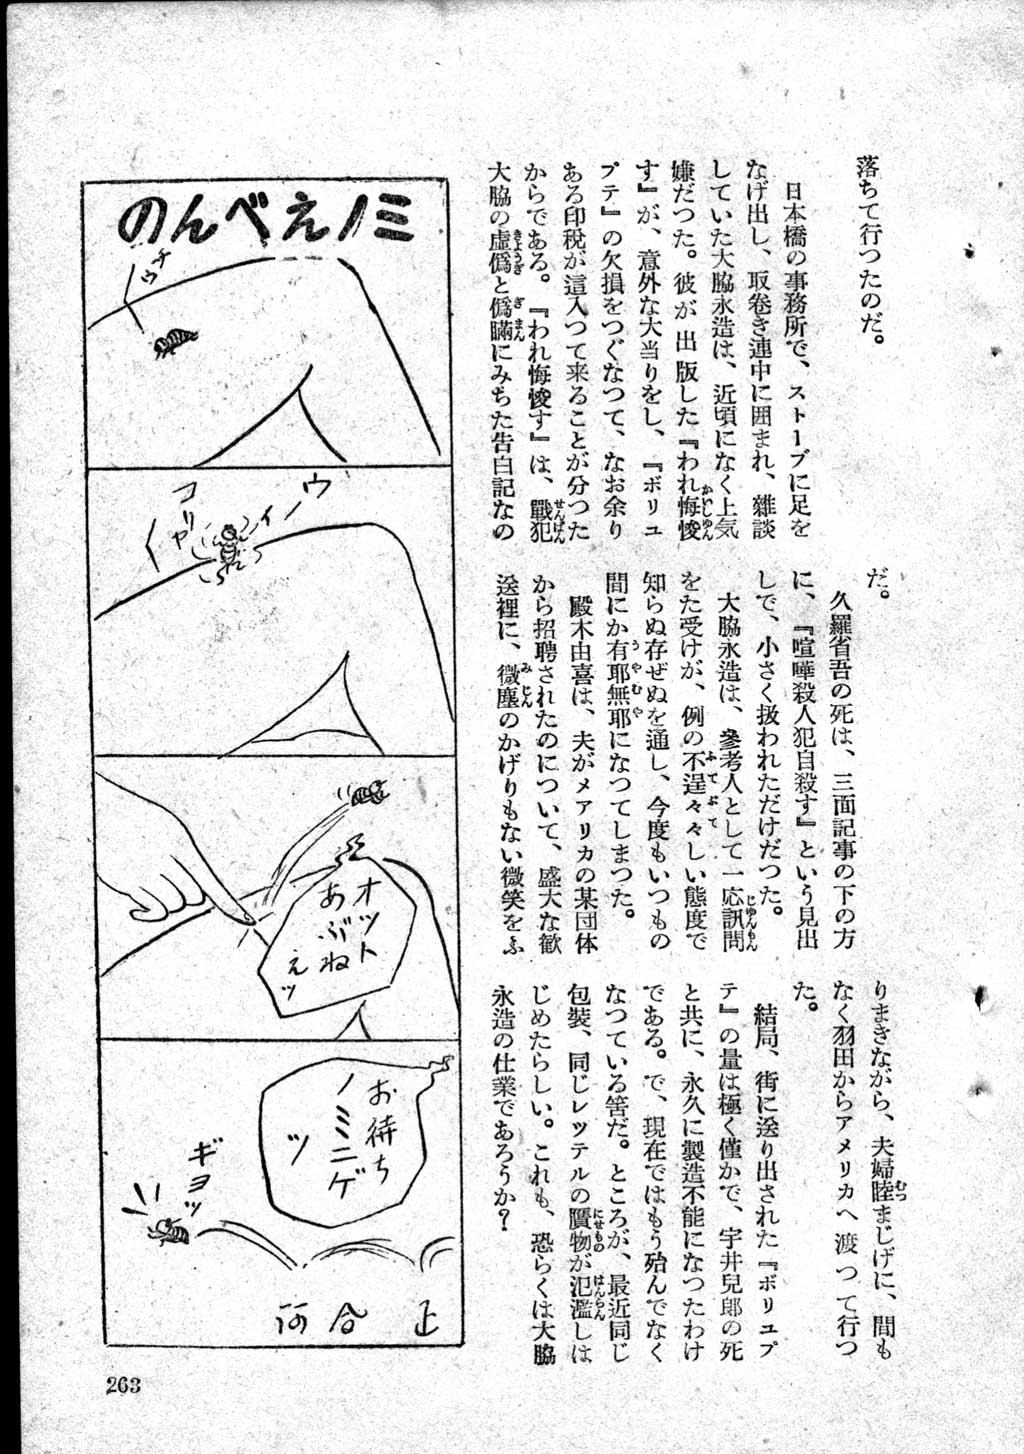 落ちて行つたのだ。
日本橋の事務所で、ストーブに足を
なげ出し、取巻き連中に囲まれ、雑談
していた大脇永造は、近頃になく上気
嫌だつた。彼が出版した『われ悔悛
す』が、意外な大当りをし、『ボリユ
プテ』の欠損をつぐなつて、なお余り
ある印税が這入つて来ることが分つた
からである。『われ悔悛す』は、戰犯
大脇の虚僞と僞瞞にみちた告白記なの
だ。
久羅省吾の死は、三面記事の下の方
に、『喧嘩殺人犯自殺す』という見出
しで、小さく扱われただけだつた。
大脇永造は、參考人として一応訊問
をた受けが、例の不逞々々しい態度で
知らぬ存ぜぬを通し、今度もいつもの
間にか有耶無耶になつてしまつた。
殿木由喜は、夫がメアリカの某団体
から招聘されたのについて、盛大な歓
送裡に、微塵のかげりもない微笑をふ
りまきながら、夫婦睦まじげに、間も
なく羽田からアメリカへ渡つて行つ
た。
結局、街に送り出された『ボリユプ
テ』の量は極く僅かで、宇井兒郎の死
と共に、永久に製造不能になつたわけ
である。で、現在ではもう殆んでなく
なつている筈だ。ところが、最近同じ
包裝、同じレツテルの贋物が氾濫しは
じめたらしい。これも、恐らくは大脇
永造の仕業であろうか？
のんべえノミ
チウ
ウーイ
コリャ
オット
あぶね
えッ
お待ち
ノミニゲ
ッ
ギョッ
河合正
263